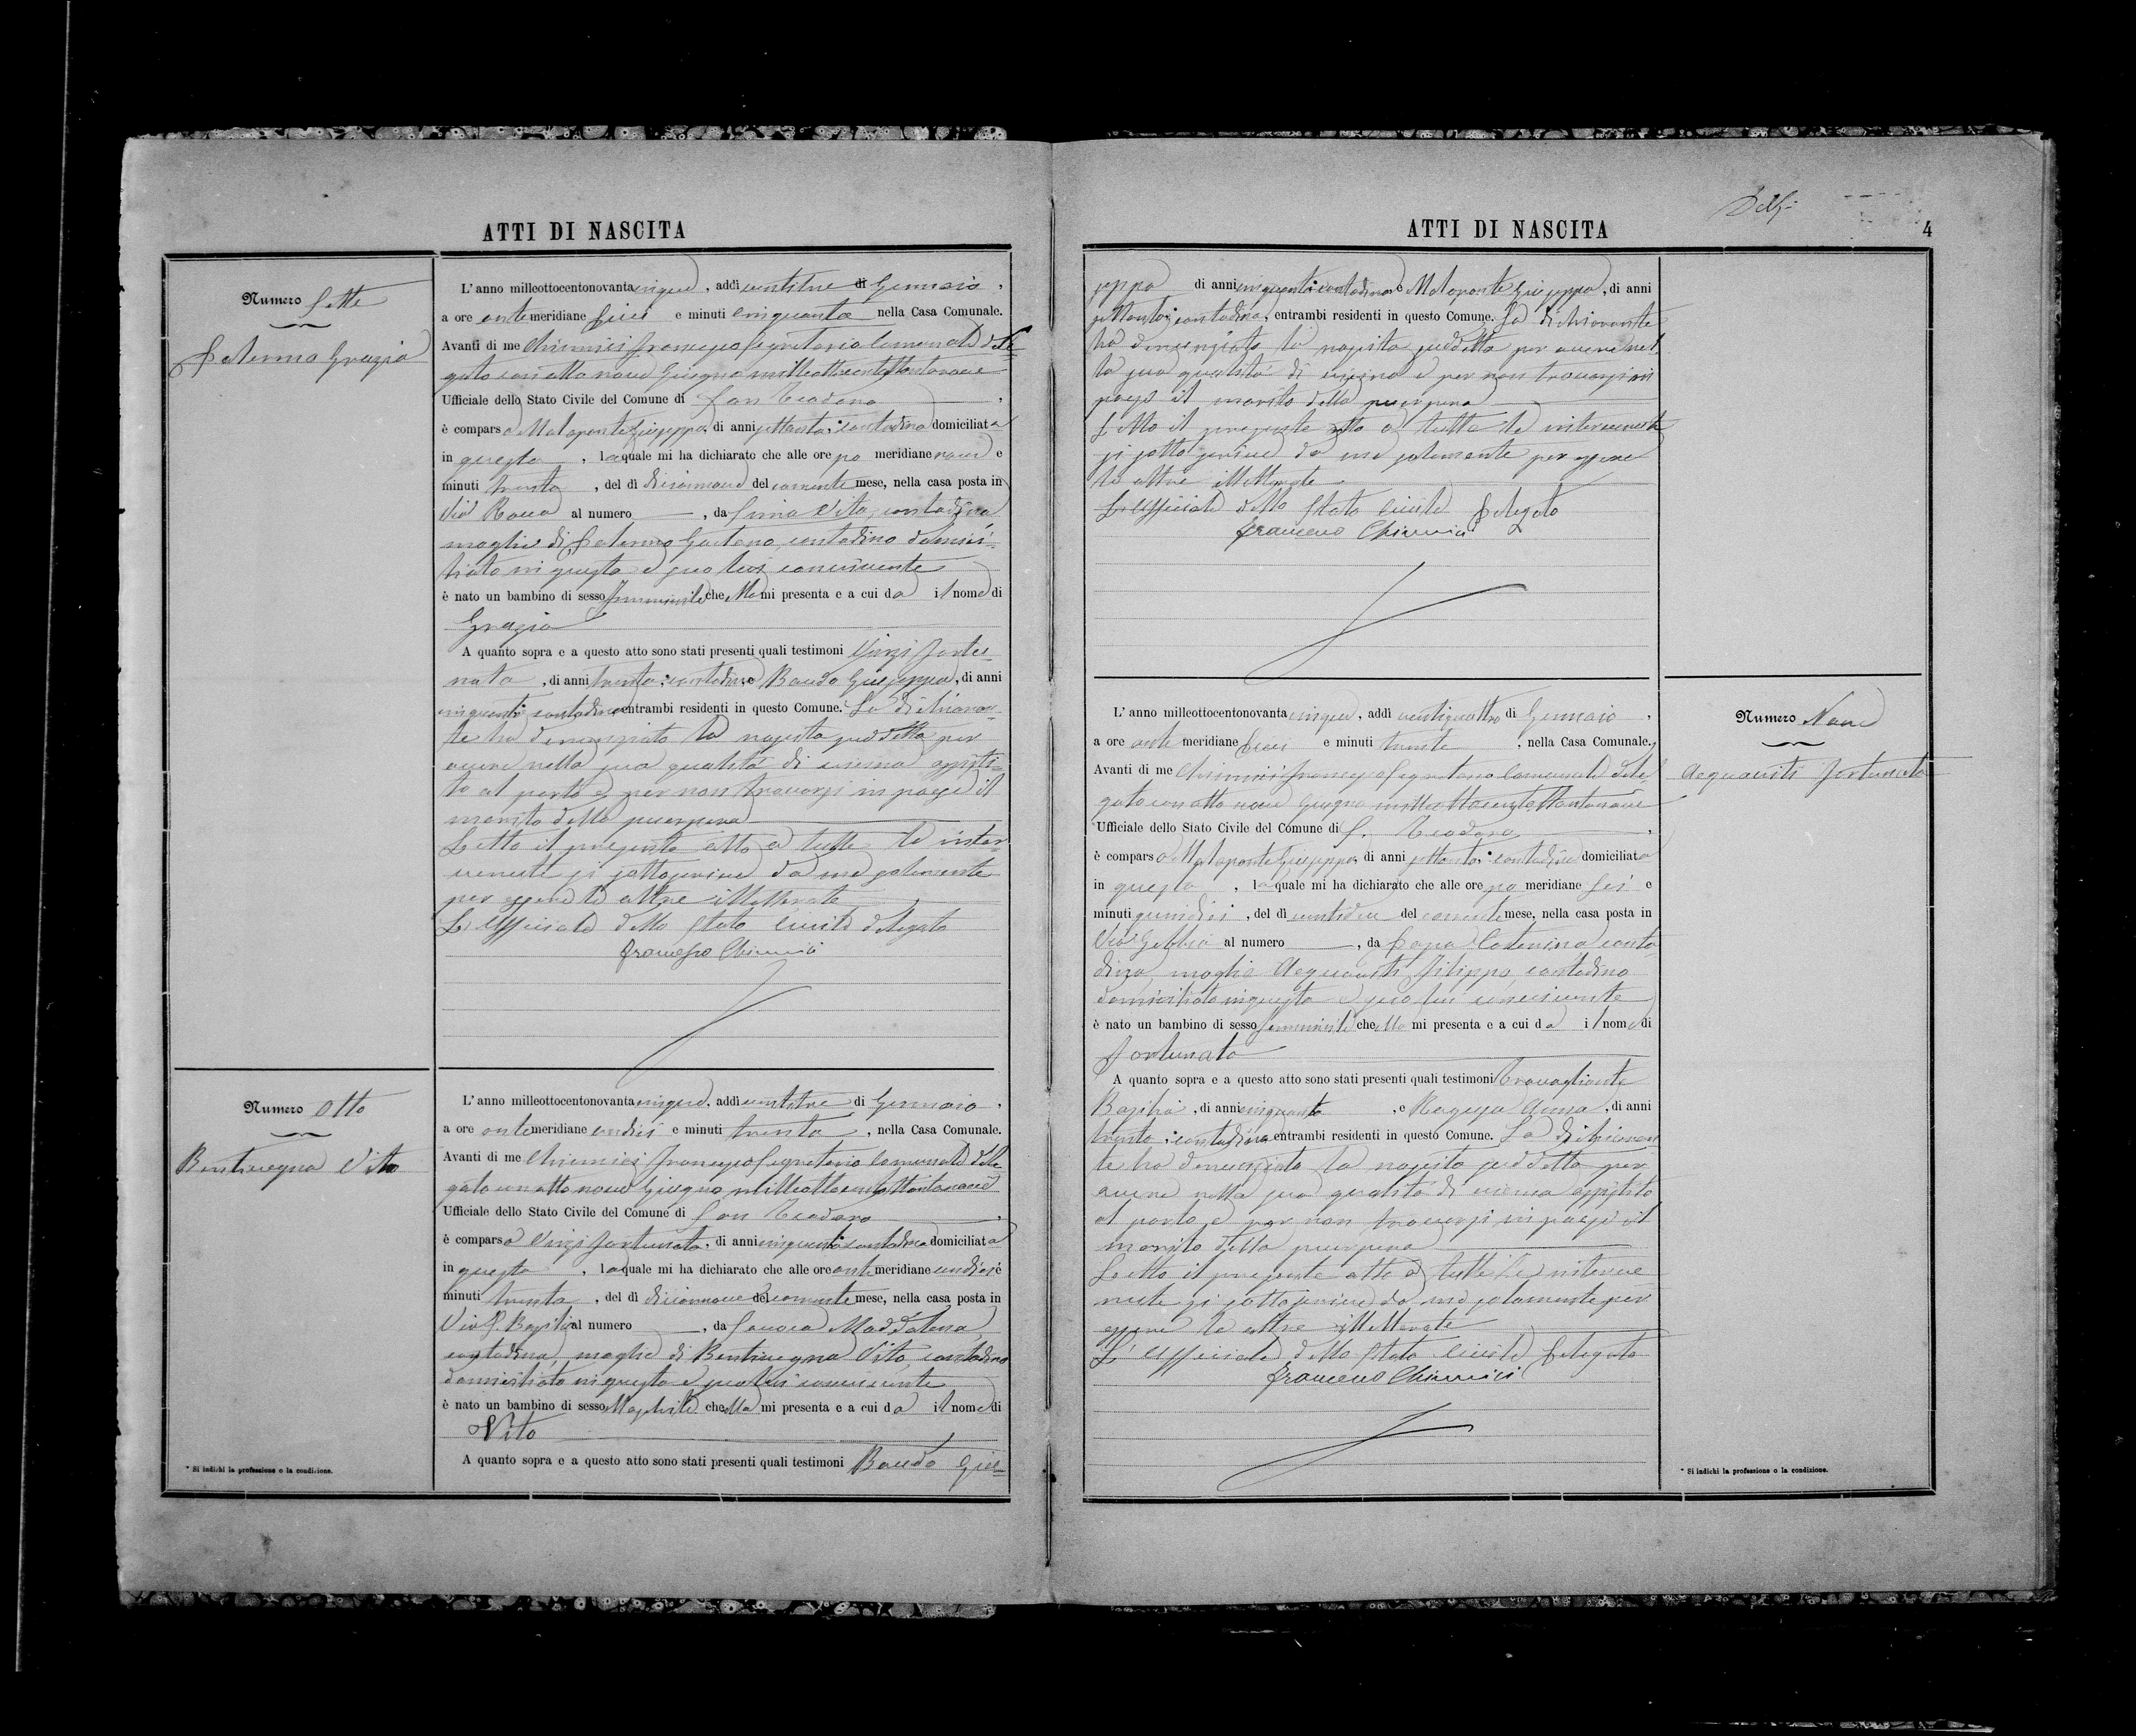 ATTI DI NASCITA
Numero Sette
Palermo Grazia
L'anno milleottocentonovantacinque, addì ventitre di Gennaio,
a ore antemeridiane dieci e minuti cinquanta nella Casa Comunale.
Avanti di me Chiminei Francesco Segretario Comunale dele-
gato con atto nove Giugno milleottocentottantanove
Ufficiale dello Stato Civile del Comune di San Teodoro,
è comparsa Malaponte Giuseppa, di anni settanta, contadina domiciliata
in questa, laquale mi ha dichiarato che alle ore po meridiane nove e
minuti trenta, del dì diciannove del corrente mese, nella casa posta in
Via Rocca al numero , da Vita, contadina
moglie di Palermo Gaetano, contadino domici-
liato in questa e seco lui convivente
è nato un bambino di sesso femminile che ella mi presenta e a cui da il nome di
Grazia
A quanto sopra e a questo atto sono stati presenti quali testimoni Virzi Fortu-
nata, di anni trenta, contadina e Bauda Giuseppa, di anni
cinquanta contadina entrambi residenti in questo Comune. La dichiaran-
te ha denunziato la nascita suddetta per
avere nella sua qualità di vicina assisti-
to al parto e per non trovarsi in paese il
marito della puerpera
Letto il presente atto a tutte le inter-
venute si sottoscrive da me solamente
per essere le altre illetterate
L'Ufficiale dello Stato Civile delegato
Francesco Chiminei
Numero Otto
Bentivegna Vito
L'anno milleottocentonovantacinque, addì ventitre di Gennaio,
a ore antemeridiane undici e minuti trenta, nella Casa Comunale.
Avanti di me Chiminei Francesco Segretario Comunale dele-
gato con atto nove Giugno milleottocentottantanove
Ufficiale dello Stato Civile del Comune di San Teodoro,
è comparsa Virzi Fortunata, di anni cinquanta contadina domiciliata
in questa, laquale mi ha dichiarato che alle ore antemeridiane undici e
minuti trenta, del dì diciannove del corrente mese, nella casa posta in
Via S. Basilio al numero , da Maddalena
contadina, moglie di Bentivegna Vito, contadino
domiciliato in questa e seco lui convivente
è nato un bambino di sesso Maschile che ella mi presenta e a cui da il nome di
Vito
A quanto sopra e a questo atto sono stati presenti quali testimoni Bauda Giu-
* Si indichi la professione o la condizione.
ATTI DI NASCITA
4
seppa di anni cinquanta contadina e Malaponte Giuseppa, di anni
settanta, contadina, entrambi residenti in questo Comune. La dichiarante
ha denunziato la nascita suddetta per avere nel-
la sua qualità di vicina e per non trovarsi in
paese il marito della puerpera
Letto il presente atto a tutte le intervenute
si sottoscrive da me solamente per essere
le altre illetterate
L'Ufficiale dello Stato Civile Delegato
Francesco Chiminei
Numero Nove
Acquaviti Fortunata
L'anno milleottocentonovantacinque, addì ventiquattro di Gennaio,
a ore ante meridiane dieci e minuti trenta, nella Casa Comunale.
Avanti di me Chiminei Francesco Segretario Comunale dele-
gato con atto nove Giugno milleottocentottantanove
Ufficiale dello Stato Civile del Comune di S. Teodoro,
è comparsa Malaponte Giuseppa, di anni settanta, contadina domiciliata
in questa, laquale mi ha dichiarato che alle ore po meridiane sei e
minuti quindici, del dì ventidue del corrente mese, nella casa posta in
Via Gebbia al numero , da Caterina conta-
dina, moglie Acquaviti Filippo, contadino
domiciliato in questa e seco lui convivente
è nato un bambino di sesso femminile che ella mi presenta e a cui da il nome di
Fortunata
A quanto sopra e a questo atto sono stati presenti quali testimoni Travagliante
Basilia, di anni cinquanta, e Ragusa Anna, di anni
trenta, contadina entrambi residenti in questo Comune. La dichiaran-
te ha denunziata la nascita suddetta per
avere nella sua qualità di vicina assistito
al parto, e per non trovarsi in paese il
marito della puerpera
Letto il presente atto a tutte le interve-
nute si sottoscrive da me solamente per
essere le altre illetterate
L'Ufficiale dello Stato Civile Delegato
Francesco Chiminei
* Si indichi la professione o la condizione.